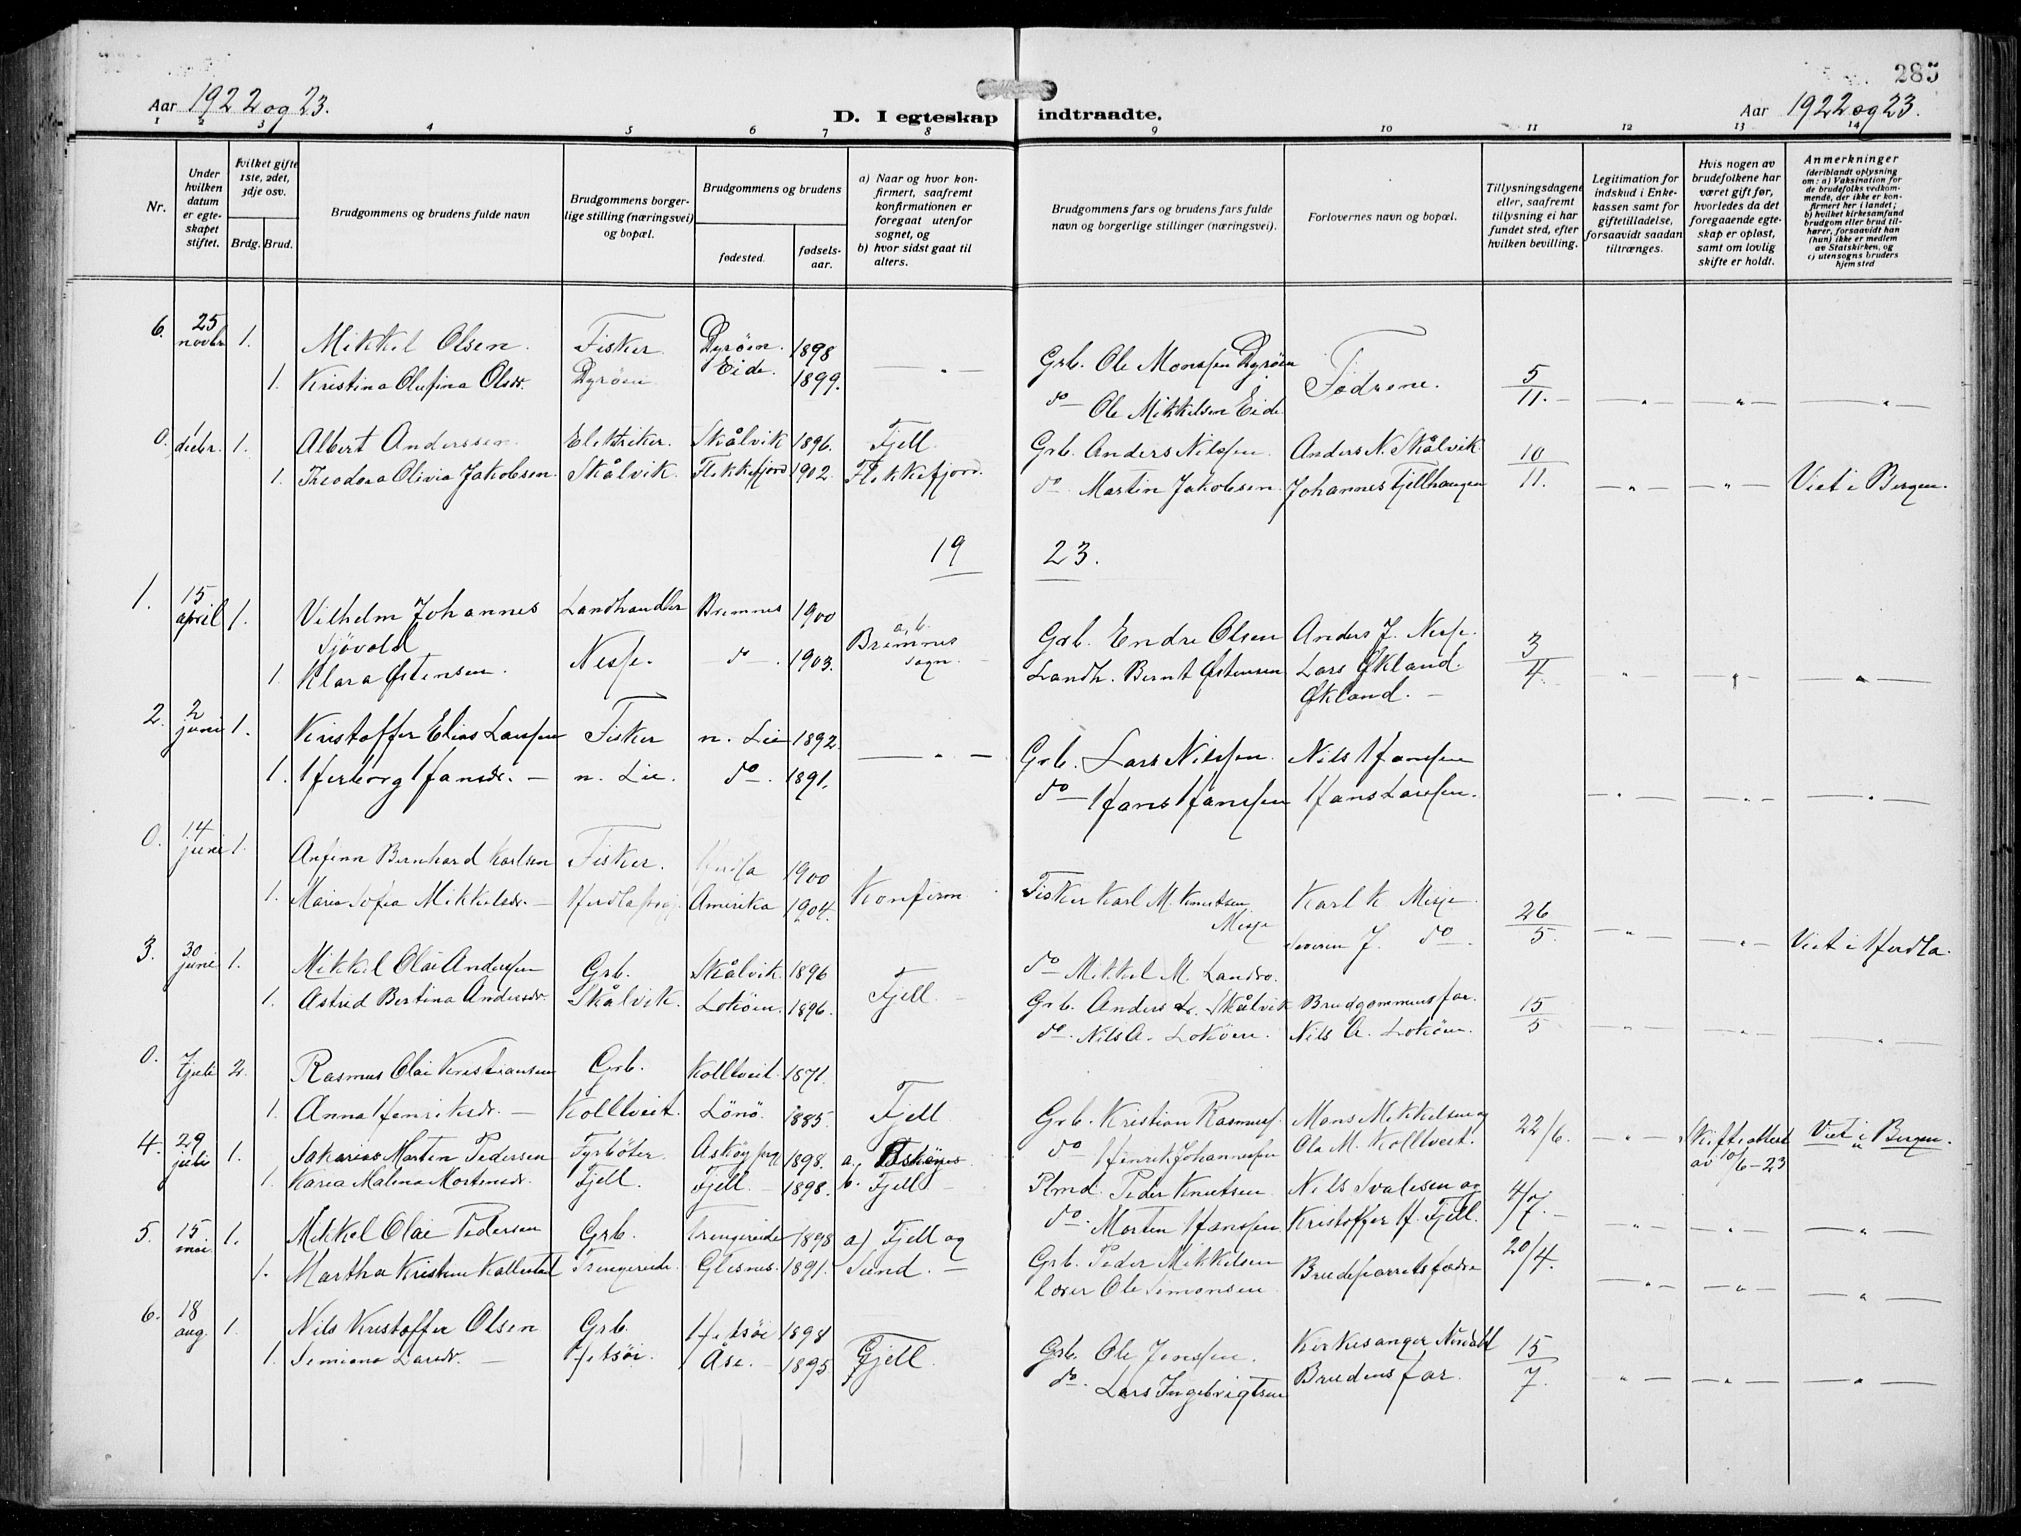 285
Aar 1922 og 23.
D. I egteskap indtraadte.
Aar 1922 og 23.
1 2 3 4 5 6 7 8 9 10 11 12 13 14
Nr.
Under hvilken datum er egteskapet stiftet.
Hvilket gifte 1ste, 2det, 3dje osv.
Brdg. Brud.
Brudgommens og brudens fulde navn
Brudgommens borgerlige stilling (næringsvei) og bopæl.
Brudgommens og brudens
fødested.
fødselsaar.
a) Naar og hvor konfirmert, saafremt konfirmationen er foregaat utenfor sognet, og
b) hvor sidst gaat til alters.
Brudgommens fars og brudens fars fulde navn og borgerlige stillinger (næringsvei).
Forlovernes navn og bopæl.
Tillysningsdagene eller, saafremt tillysning ei har fundet sted, efter hvilken bevilling.
Legitimation for indskud i Enkekassen samt for giftetilladelse, forsaavidt saadan tiltrænges.
Hvis nogen av brudefolkene har været gift før, hvorledes da det foregaaende egteskap er opløst, samt om lovlig skifte er holdt.
Anmerkninger (deriblandt oplysning om: a) Vaksination for de brudefolks vedkommende, der ikke er konfirmert her i landet; b) hvilket kirkesamfand brudgom eller brud tilhører, forsaavidt han (hun) ikke er medlem av Statskirken, og c) utensogns bruders hjemsted
6. 25 novbr 1. Mikkel Olsen. Fisker Dyröen. 1898 Grb. Ole Monssen Dyröen Fædrene. 5/11.
1. Kristina Olufina Olsdr. Dyröen Eide. 1899. do Ole Mikkelsen Eide
0. 1 decbr. 1. Albert Anderssen. Elektriker. Skålvik 1896. Fjell Grb. Anders Nilssen. Anders N. Skålvik 10/11.
1. Theodora Olivia Jakobsen Skålvik. Flekkefjord 1902. Flekkefjord. do. Martin Jakobsen. Johannes Fjellhaugen Viet i Bergen.
19 23.
1. 15 april 1. Vilhelm Johannes Sjövold Landhandler Bremnes 1900 a, b. Bremnes sogn. Grb. Endre Olsen Anders J. Nesse. 3/4.
1. Klara Østensen. Nesse. do 1903. Landh. Bernt Østensen Lars Økland. Økland.
2. 2 juni 1. Kristoffer Elias Larssen Fisker n. Lie 1892. Grb. Lars Nilssen. Nils Hanssen
1. Herborg Hansdr. n. Lie. do. 1891. do Hans Hanssen Hans Larssen.
0. 14 juni 1. Anfinn Bernhard Karlsen Fisker. Herdla 1900 Konfirm Fisker Karl M. Knutsen Misje Karl K. Misje 26/5.
1. Maria Sofia Mikkelsdr. Amerika 1904. do Mikkel M. Landro. Severin J. do. Viet i Herdla.
3. 30 juni 1. Mikkel Olai Anderssen Grb. Skålvik 1896 Fjell. Grb. Anders L. Skålvik Brudgommens far. 15/5
1. Astrid Bertina Andersdr. Skålvik. Lokøen. 1896. do. Nils A. Lokøen. Nils A. Lokøen.
0. 7 juli 2. Rasmus Olai Kristiansen Grb. Kolltveit. 1871. Fjell Grb. Kristian Rasmuss. Mons Mikkelsen og 22/6.
1. Anna Henriksdr. Kolltveit. Lönö. 1885. do Henrik Johannessen Ole M. Kolltveit. Skifteattest av 10/6-23 Viet i Bergen.
4. 29 juli 1. Sakarias Morten Pedersen Fyrböter. Askøy 1898. a, Askøy Plmd. Peder Knutsen. Nils Ivalesen og 4/7.
1. Karia Malena Mortensdr. Fjell. Fjell. 1898. b. Fjell do. Morten Hanssen Kristoffer H. Fjell.
5. 15. mai. 1. Mikkel Olai Pedersen Grb. Trengereide 1898 a) Fjell og Grb. Peder Mikkelsen Brudeparrets fædre 20/4.
1. Martha Kristine Kallestad Trengereide. Glesnes. 1891. Sund. Lærer Ole Simonsen.
6. 18 aug. 1. Nils Kristoffer Olsen Grb. Hetsöi 1898 Fjell. Grb. Ole Jenssen. Kirkesanger Nordahl 15/7.
1. Simiana Larsdr. Hetsöi. Åse. 1895 do. Lars Ingebrigtsen Brudens far.